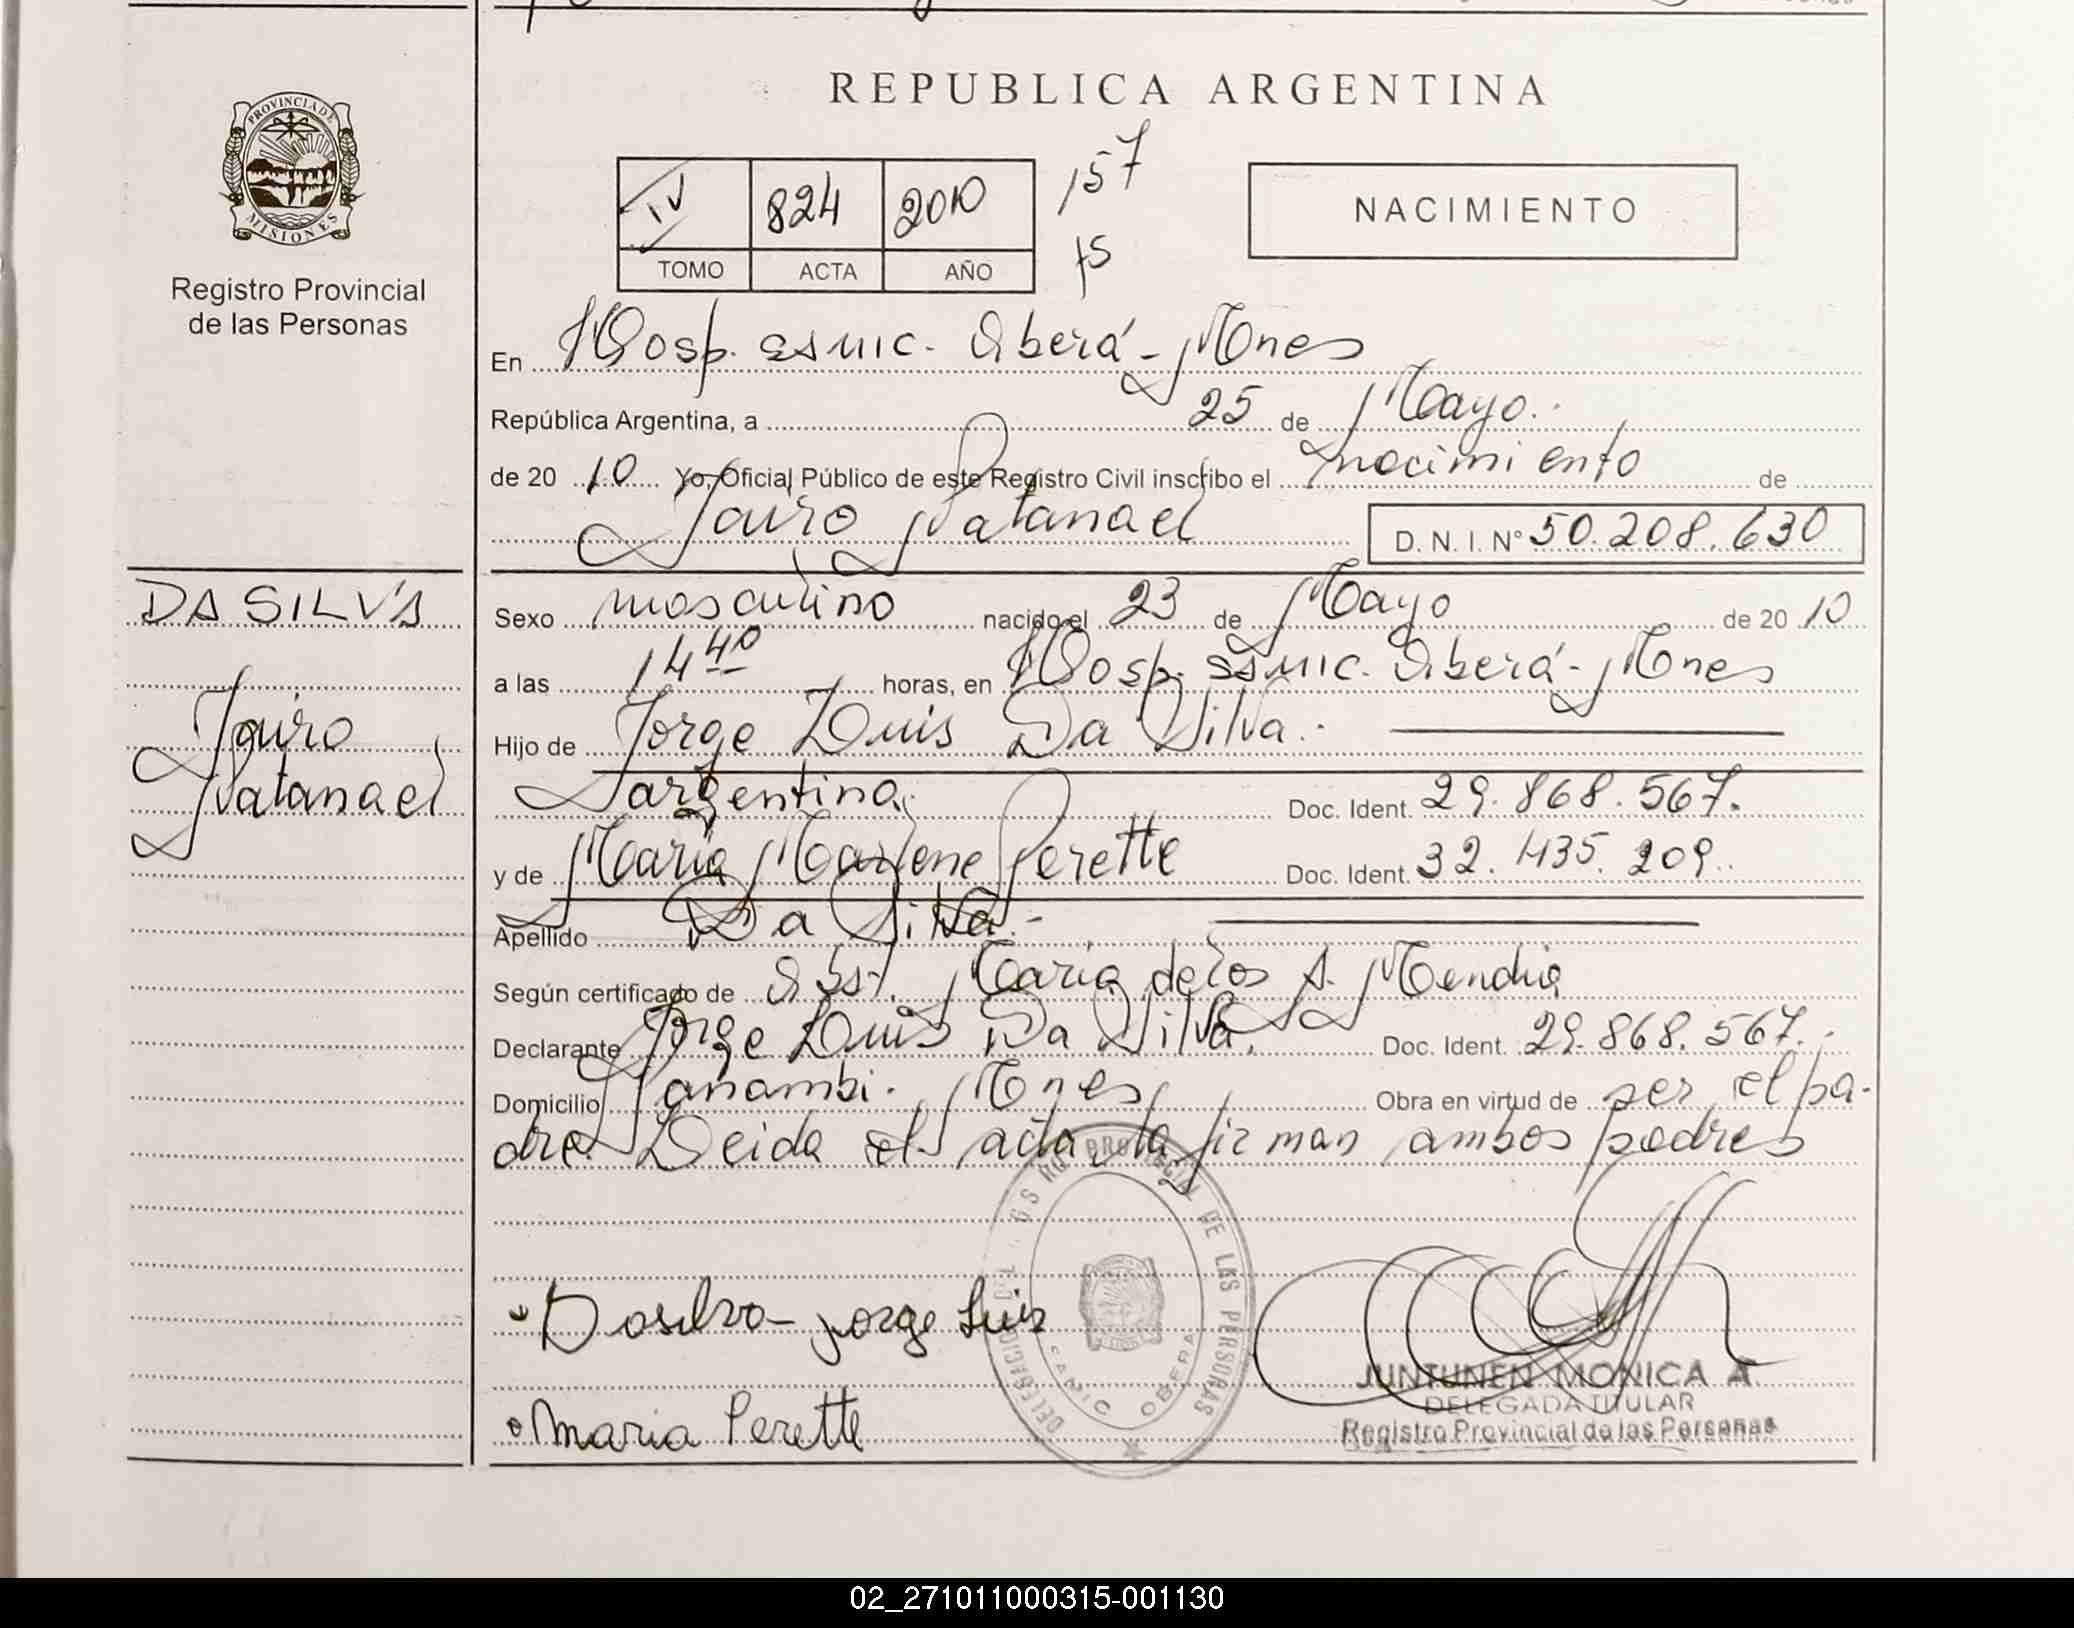 REPUBLICA ARGENTINA
PROVINCIA DE
MISIONES
Registro Provincial
de las Personas
IV 824 2010
TOMO ACTA AÑO
157
75
NACIMIENTO
En Hosp. Oberá - Mnes
República Argentina, a 25 de Mayo
de 20 10 Yo, Oficial Público de este Registro Civil inscribo el nacimiento de
Jairo Natanael D. N. I. Nº 50.208.630
DA SILVA
Jairo
Natanael
Sexo masculino nacido el 23 de Mayo de 20 10
a las 14 40 horas, en Hosp. Oberá - Mnes
Hijo de Jorge Luis Da Silva.-
argentina Doc. Ident. 29.868.567.
y de Maria Marlene Perette Doc. Ident. 32.435.209
Apellido Da Silva.-
Según certificado de Obst. Maria de los A. Mendia
Declarante Jorge Luis Da Silva. Doc. Ident. 29.868.567.
Domicilio Panambi. Mnes Obra en virtud de ser el pa-
dre. Leida el acta la firman ambos padres
Dasilva Jorge Luis
maria Perette
PROVINCIAL DE LAS PERSONAS
OBERA
JUNTUNEN MONICA A
DELEGADA TITULAR
Registro Provincial de las Personas
02_271011000315-001130